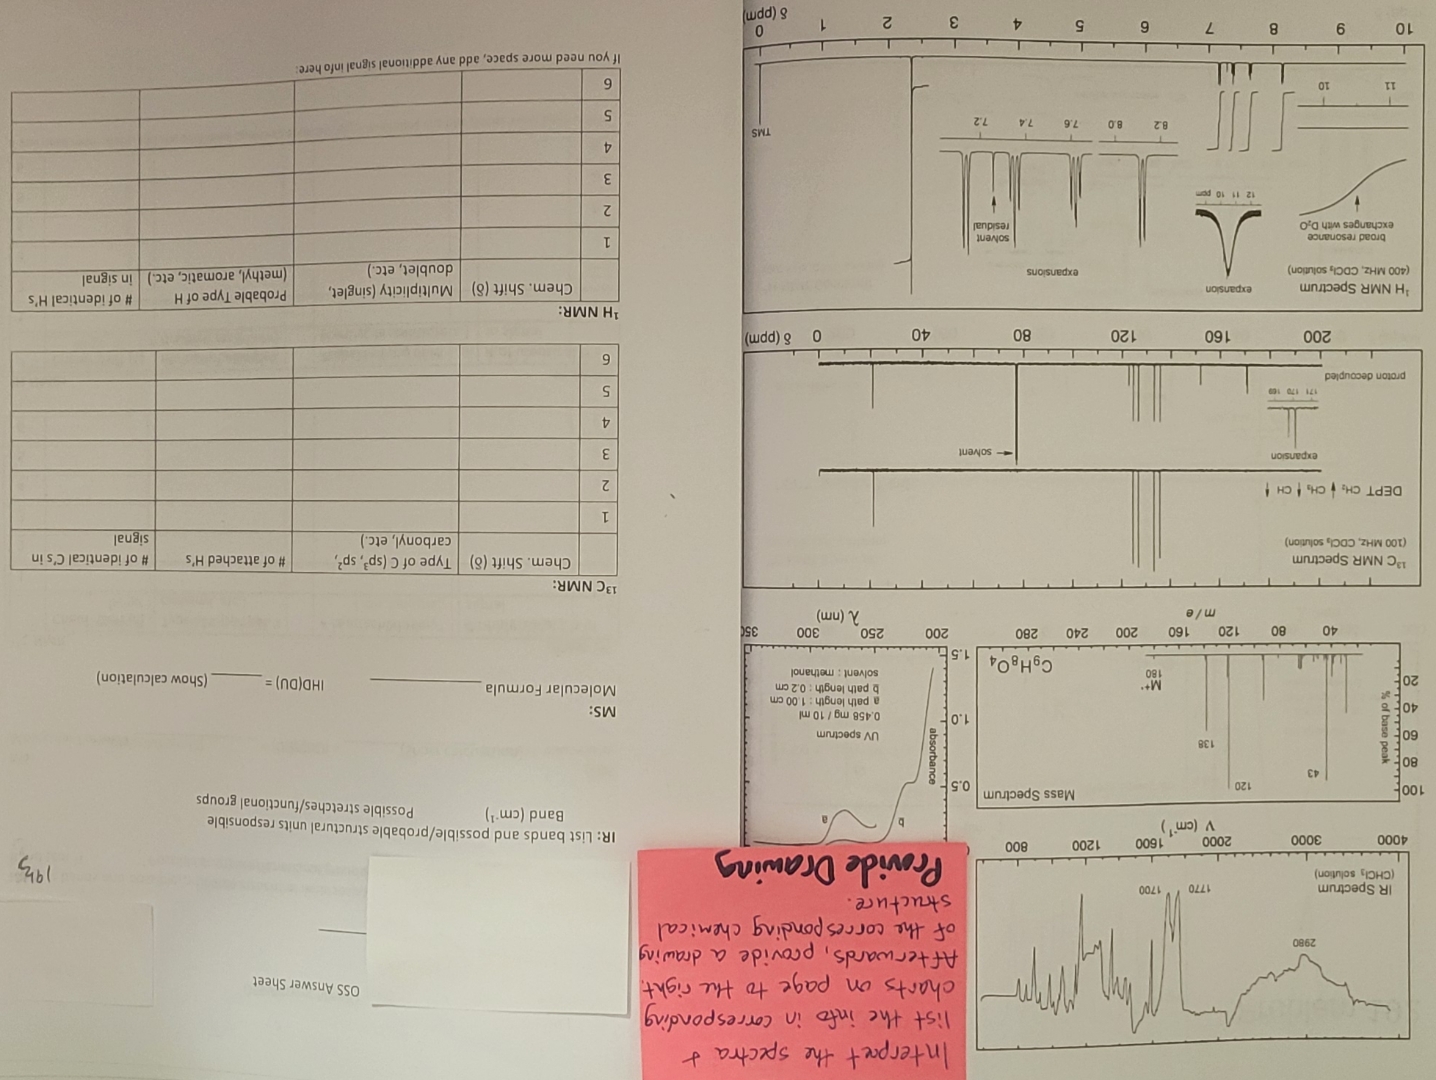 Interpret the spectra &
list the info in corresponding
charts on page to the right.
Afterwards, provide a drawing
of the corresponding chemical
structure.
Provide Drawing
IR Spectrum
(CHCl₃ solution)
2980
1770
1700
4000 3000 2000 1600 1200 800
V (cm⁻¹)
Mass Spectrum
100
80
60
40
20
% of base peak
43
120
138
M⁺·
180
C₉H₈O₄
40 80 120 160 200 240 280
m / e
absorbance
0.5
1.0
1.5
b
a
UV spectrum
0.458 mg / 10 ml
a path length : 1.00 cm
b path length : 0.2 cm
solvent : methanol
200 250 300 350
λ (nm)
¹³C NMR Spectrum
(100 MHz, CDCl₃ solution)
DEPT CH₂ CH₃ CH
expansion
171 170 169
solvent
proton decoupled
200 160 120 80 40 0 δ (ppm)
¹H NMR Spectrum
(400 MHz, CDCl₃ solution)
broad resonance
exchanges with D₂O
expansion
12 11 10 ppm
expansions
solvent
residual
8.2 8.0 7.6 7.4 7.2
11 10
TMS
10 9 8 7 6 5 4 3 2 1 0
δ (ppm)
OSS Answer Sheet
IR: List bands and possible/probable structural units responsible
Band (cm⁻¹) Possible stretches/functional groups
MS:
Molecular Formula ____________ IHD(DU) = ______ (Show calculation)
¹³C NMR:
Chem. Shift (δ) Type of C (sp³, sp², carbonyl, etc.) # of attached H's # of identical C's in signal
1
2
3
4
5
6
¹H NMR:
Chem. Shift (δ) Multiplicity (singlet, doublet, etc.) Probable Type of H (methyl, aromatic, etc.) # of identical H's in signal
1
2
3
4
5
6
If you need more space, add any additional signal info here: